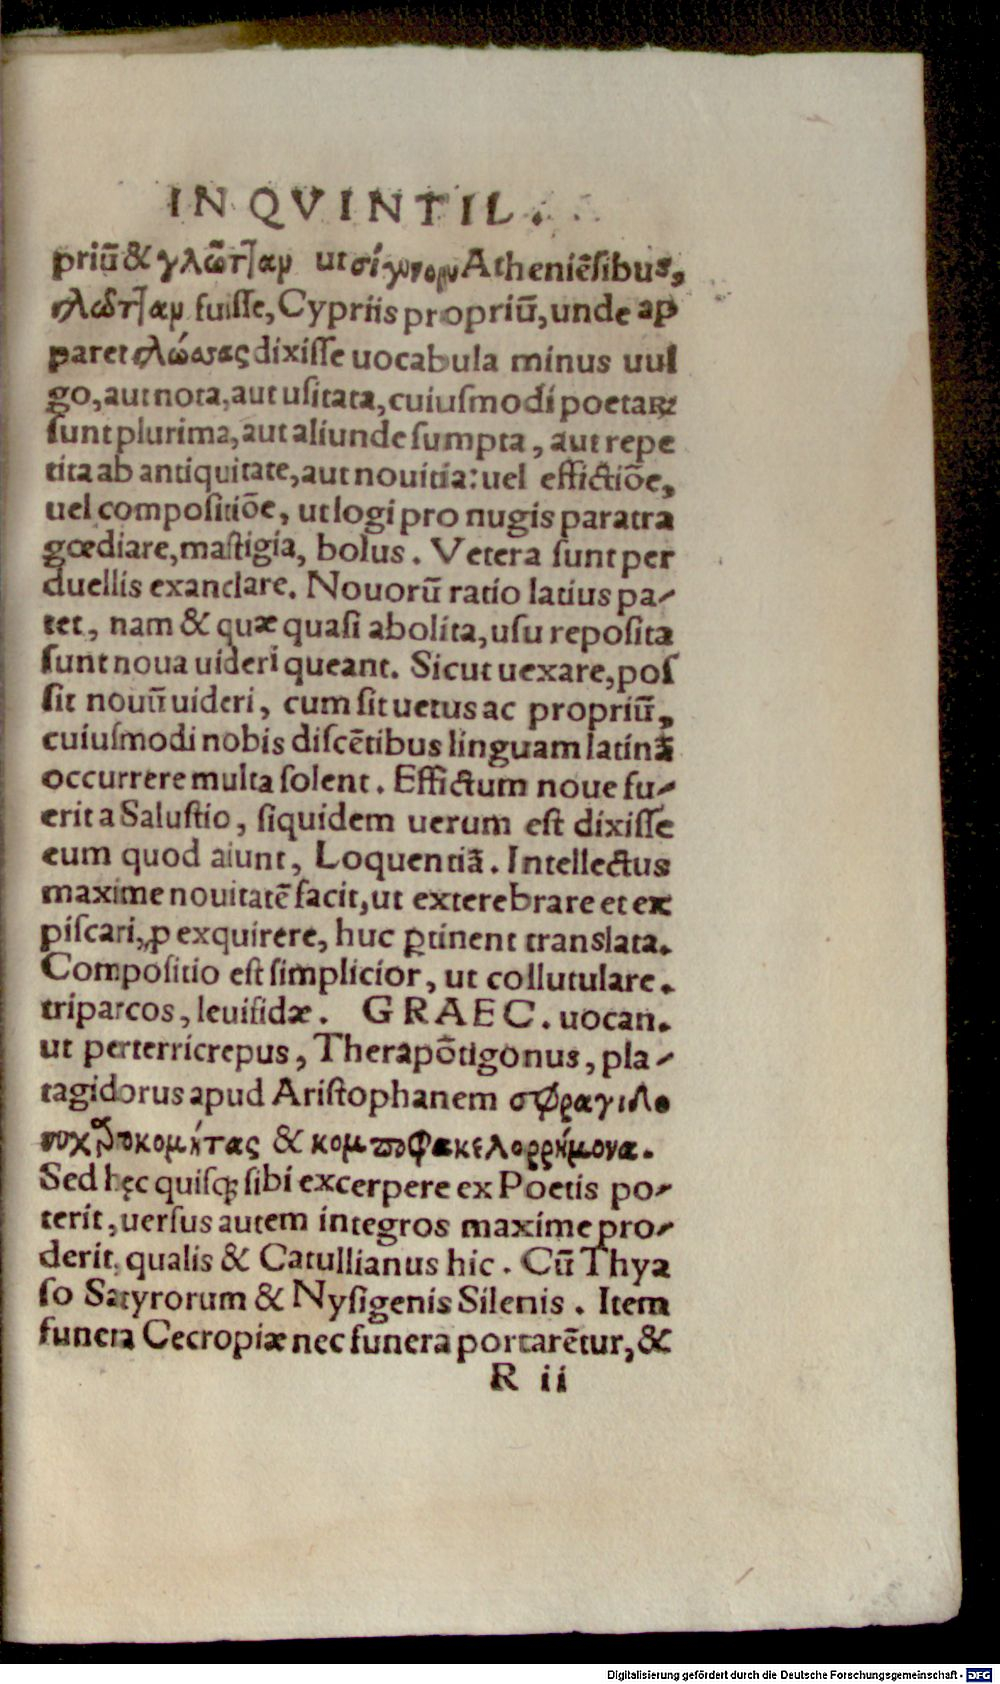 IN QVINTIL.
priū & γλῶτταν ut σίγυνον Atheniēsibus,
γλῶτταν fuisse, Cypriis propriū, unde ap
paret γλώσσας dixisse uocabula minus uul
go, aut nota, aut usitata, cuiusmodi poetaꝝ
sunt plurima, aut aliunde sumpta, aut repe
tita ab antiquitate, aut nouitia: uel effictiōe,
uel compositiōe, ut logi pro nugis paratra
gœdiare, mastigia, bolus. Vetera sunt per
duellis exanclare. Nouorū ratio latius pa-
tet, nam & quæ quasi abolita, usu reposita
sunt noua uideri queant. Sicut uexare, pos
sit nouū uideri, cum sit uetus ac propriū,
cuiusmodi nobis discētibus linguam latinā
occurrere multa solent. Effictum noue fu-
erit a Salustio, siquidem uerum est dixisse
eum quod aiunt, Loquentiā. Intellectus
maxime nouitatē facit, ut exterebrare et ex
piscari, ꝓ exquirere, huc ꝑtinent translata.
Compositio est simplicior, ut collutulare.
triparcos, leuifidæ. GRAEC. uocan.
ut perterricrepus, Therapōtigonus, pla-
tagidorus apud Aristophanem σφραγιδο
νυχαργοκομήτας & κομποφακελορρήμονα.
Sed hęc quisqꝫ sibi excerpere ex Poetis po-
terit, uersus autem integros maxime pro-
derit, qualis & Catullianus hic. Cū Thya
so Satyrorum & Nysigenis Silenis. Item
funera Cecropiæ nec funera portarētur, &
R ii
Digitalisierung gefördert durch die Deutsche Forschungsgemeinschaft - DFG